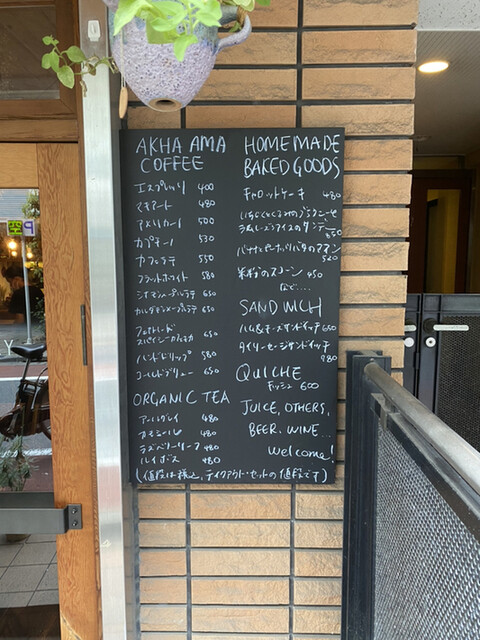 AKHA AMA
COFFEE
エスプレッソ 400
マキアート 480
アメリカーノ 500
カプチーノ 530
カフェラテ 550
フラットホワイト 580
シナモンメープルラテ 650
カルダモンメープルラテ 650
フェアトレード
スパイシーカルモカ 650
ハンドドリップ 580
コールドブリュー 650
ORGANIC TEA
アールグレイ 480
カモミール 480
ラズベリーリーフ 480
ルイボス 480
HOMEMADE
BAKED GOODS
キャロットケーキ 480
いちじくとくるみのブラウニーと
350
バナナとピーナッツバターのマフィン
520
米粉のスコーン 450
など....
SANDWICH
ハム&チーズサンドイッチ 650
タイソーセージサンドイッチ
980
QUICHE
キッシュ 600
JUICE, OTHERS,
BEER. WINE...
Welcome!
(値段は税込、テイクアウト・セットの値段です)